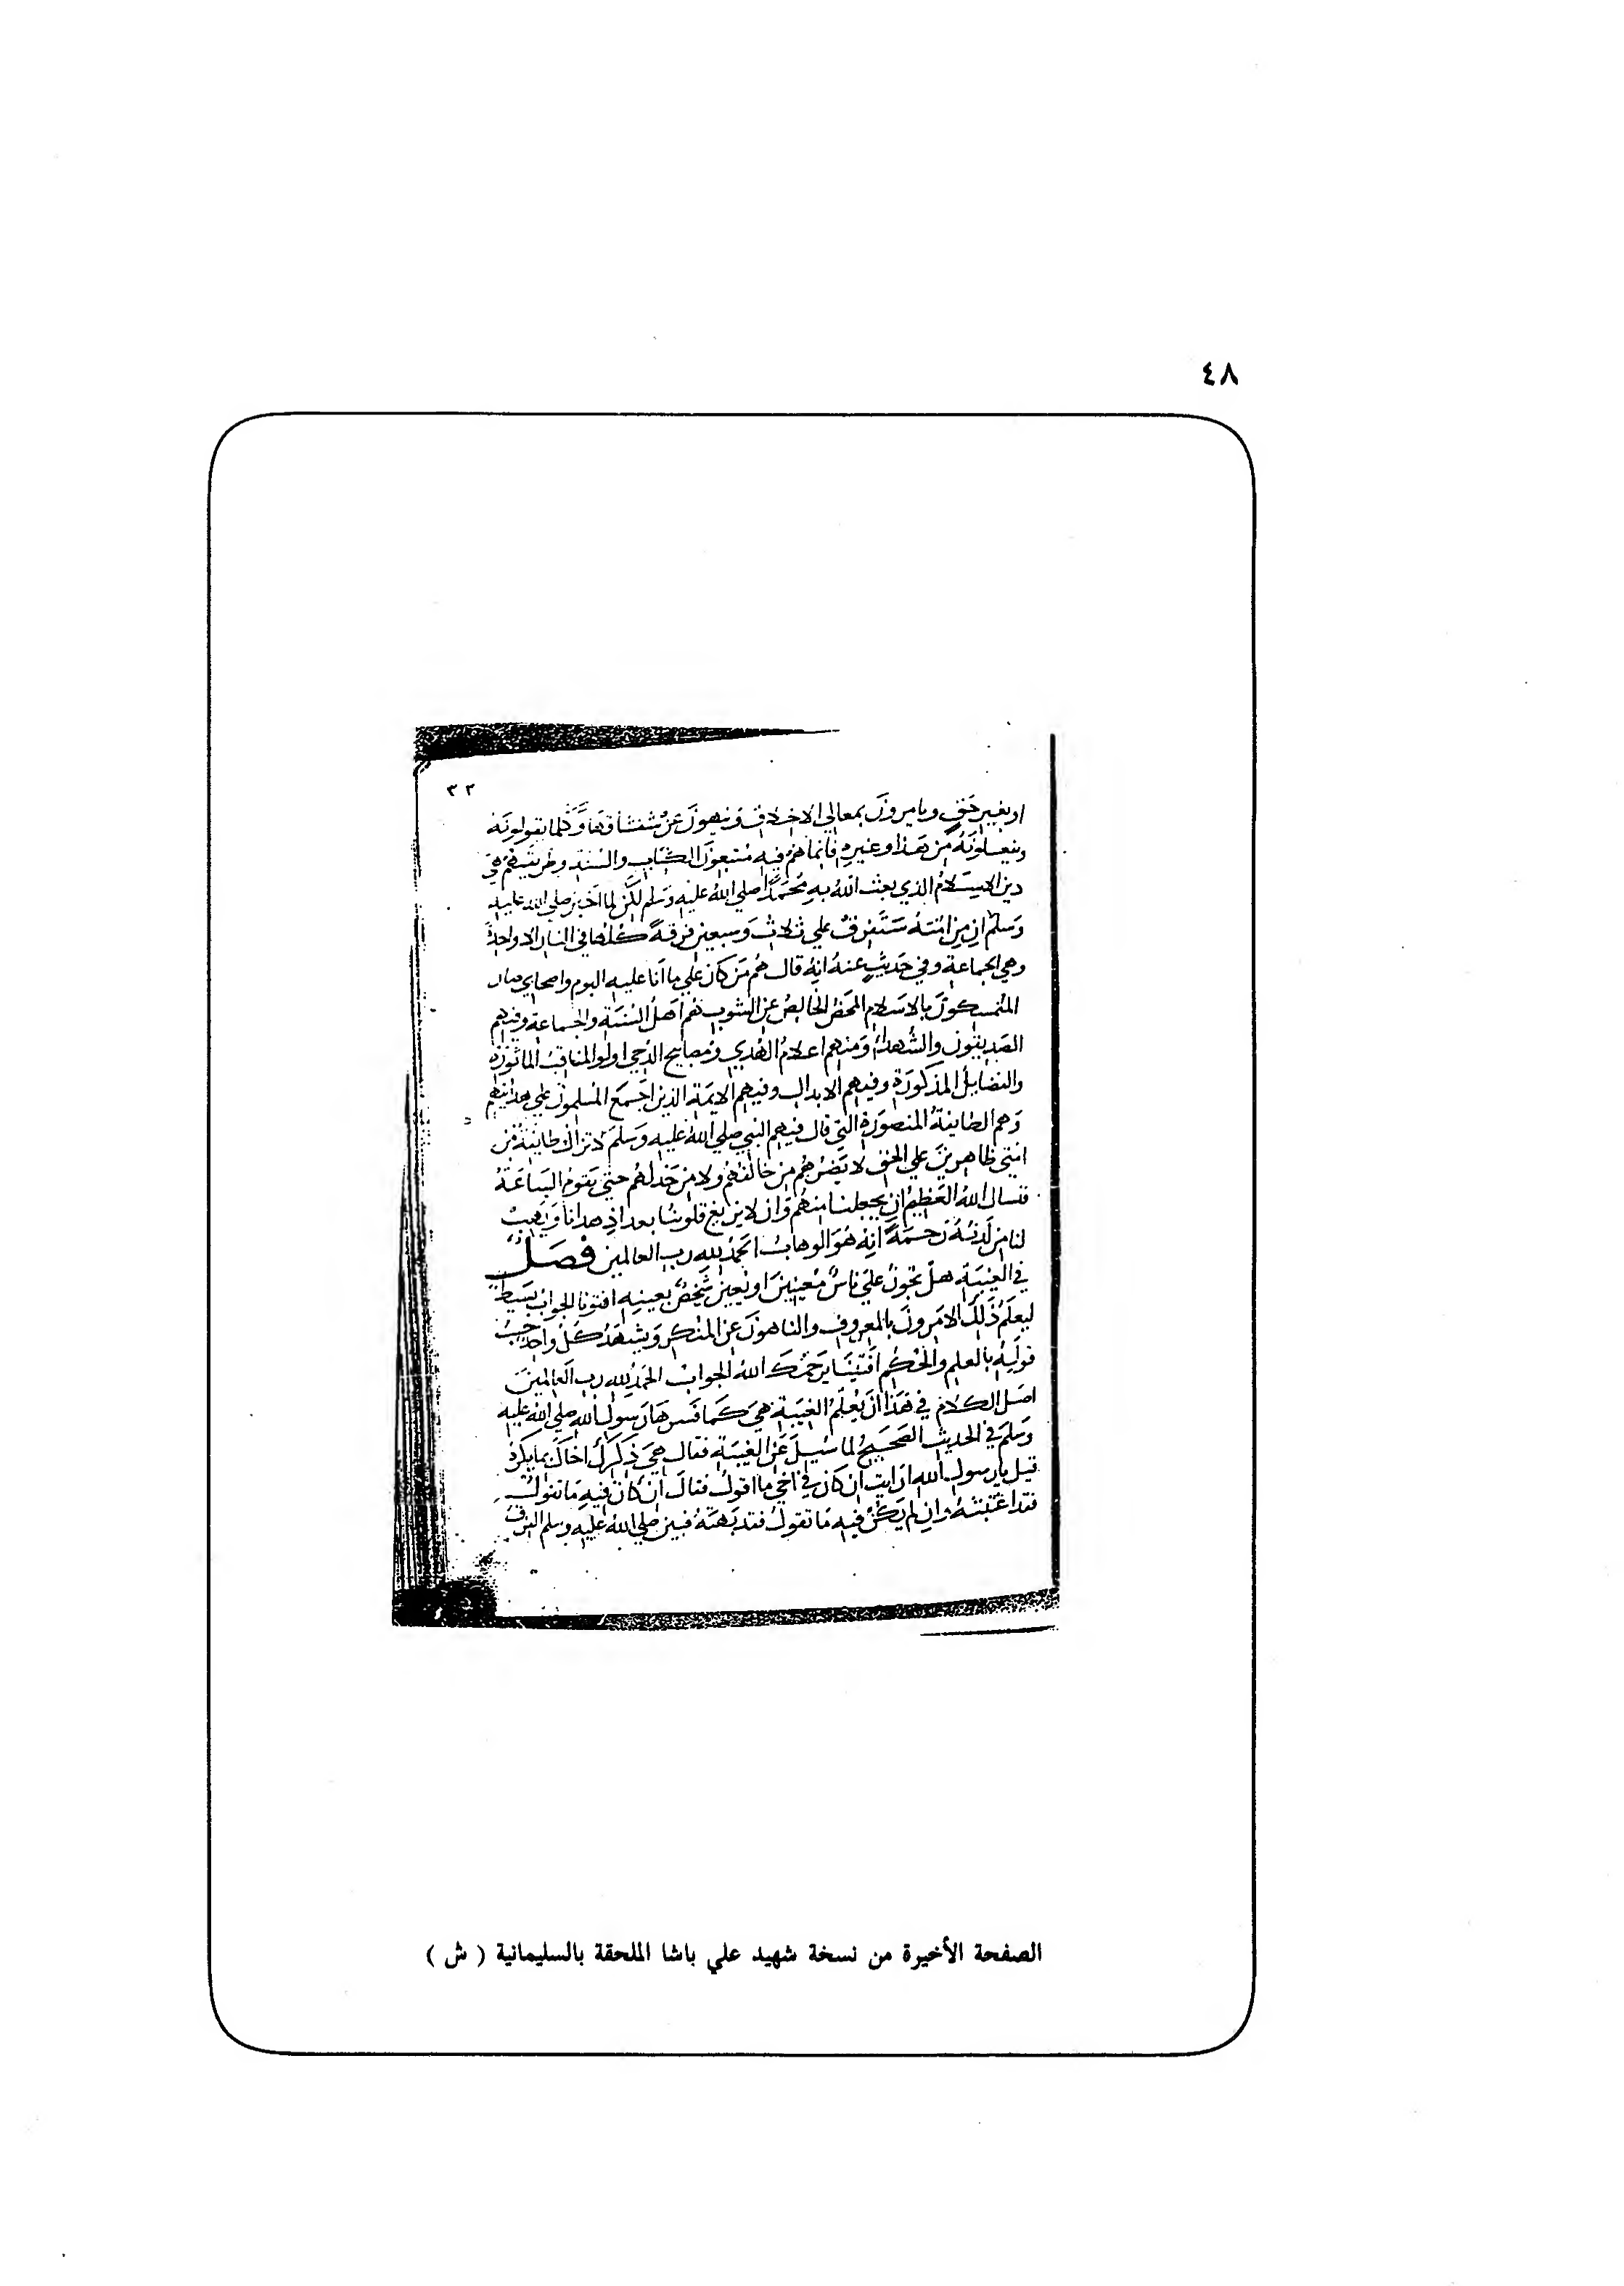 ٤٨
٣٣
او بغير حق ويامرون بمعالي الاخلاق وينهون عن سفسافها وكلما يقولونه
ويفعلونه من هذا وغيره فانما هم فيه متبعون الكتاب والسنة وطريقتهم هي
دين الاسلام الذي بعث الله به محمدا صلي الله عليه وسلم لكن لما اخبر صلي الله عليه
وسلم ان من امته ستفرق علي ثلاث وسبعين فرقة كلها في النار الا واحدة
وهي الجماعة وفي حديث عنه انه قال هم من كان علي ما انا عليه اليوم واصحابي صار
المتمسكون بالاسلام المحض الخالص عن الشوب هم اهل السنة والجماعة وفيهم
الصديقون والشهداء ومنهم اعلام الهدي ومصابيح الدجي اولو المناقب الماثورة
والفضايل المذكورة وفيهم الابدال وفيهم الايمة الذين اجمع المسلمون علي هدايتهم
وهم الطايفة المنصورة التي قال فيهم النبي صلي الله عليه وسلم لا تزال طايفة من
امتي ظاهرين علي الحق لا يضرهم من خالفهم ولا من خذلهم حتي تقوم الساعة
فنسال الله العظيم ان يجعلنا منهم وان لا يزيغ قلوبنا بعد اذ هدانا ويهب
لنا من لدنه رحمة انه هو الوهاب الحمد لله رب العالمين فصل
في الغيبة هل تجوز علي ناس معينين او يعين شخص بعينه افتونا الجواب بسيط
ليعلم ذلك الامرون بالمعروف والناهون عن المنكر ويشهد كل واحد بحسب
قوله بالعلم والحكم افتينا يرحمك الله الجواب الحمد لله رب العالمين
اصل الكلام في هذا ان يعلم الغيبة هي كما فسرها رسول الله صلي الله عليه
وسلم في الحديث الصحيح لما سيل عن الغيبة فقال هي ذكرك اخاك بما يكره
قيل يا رسول الله ارايت ان كان في اخي ما اقول فقال ان كان فيه ما تقول
فقد اغتبته وان لم يكن فيه ما تقول فقد بهته فبين صلي الله عليه وسلم الفرق
الصفحة الأخيرة من نسخة شهيد علي باشا الملحقة بالسليمانية ( ش )